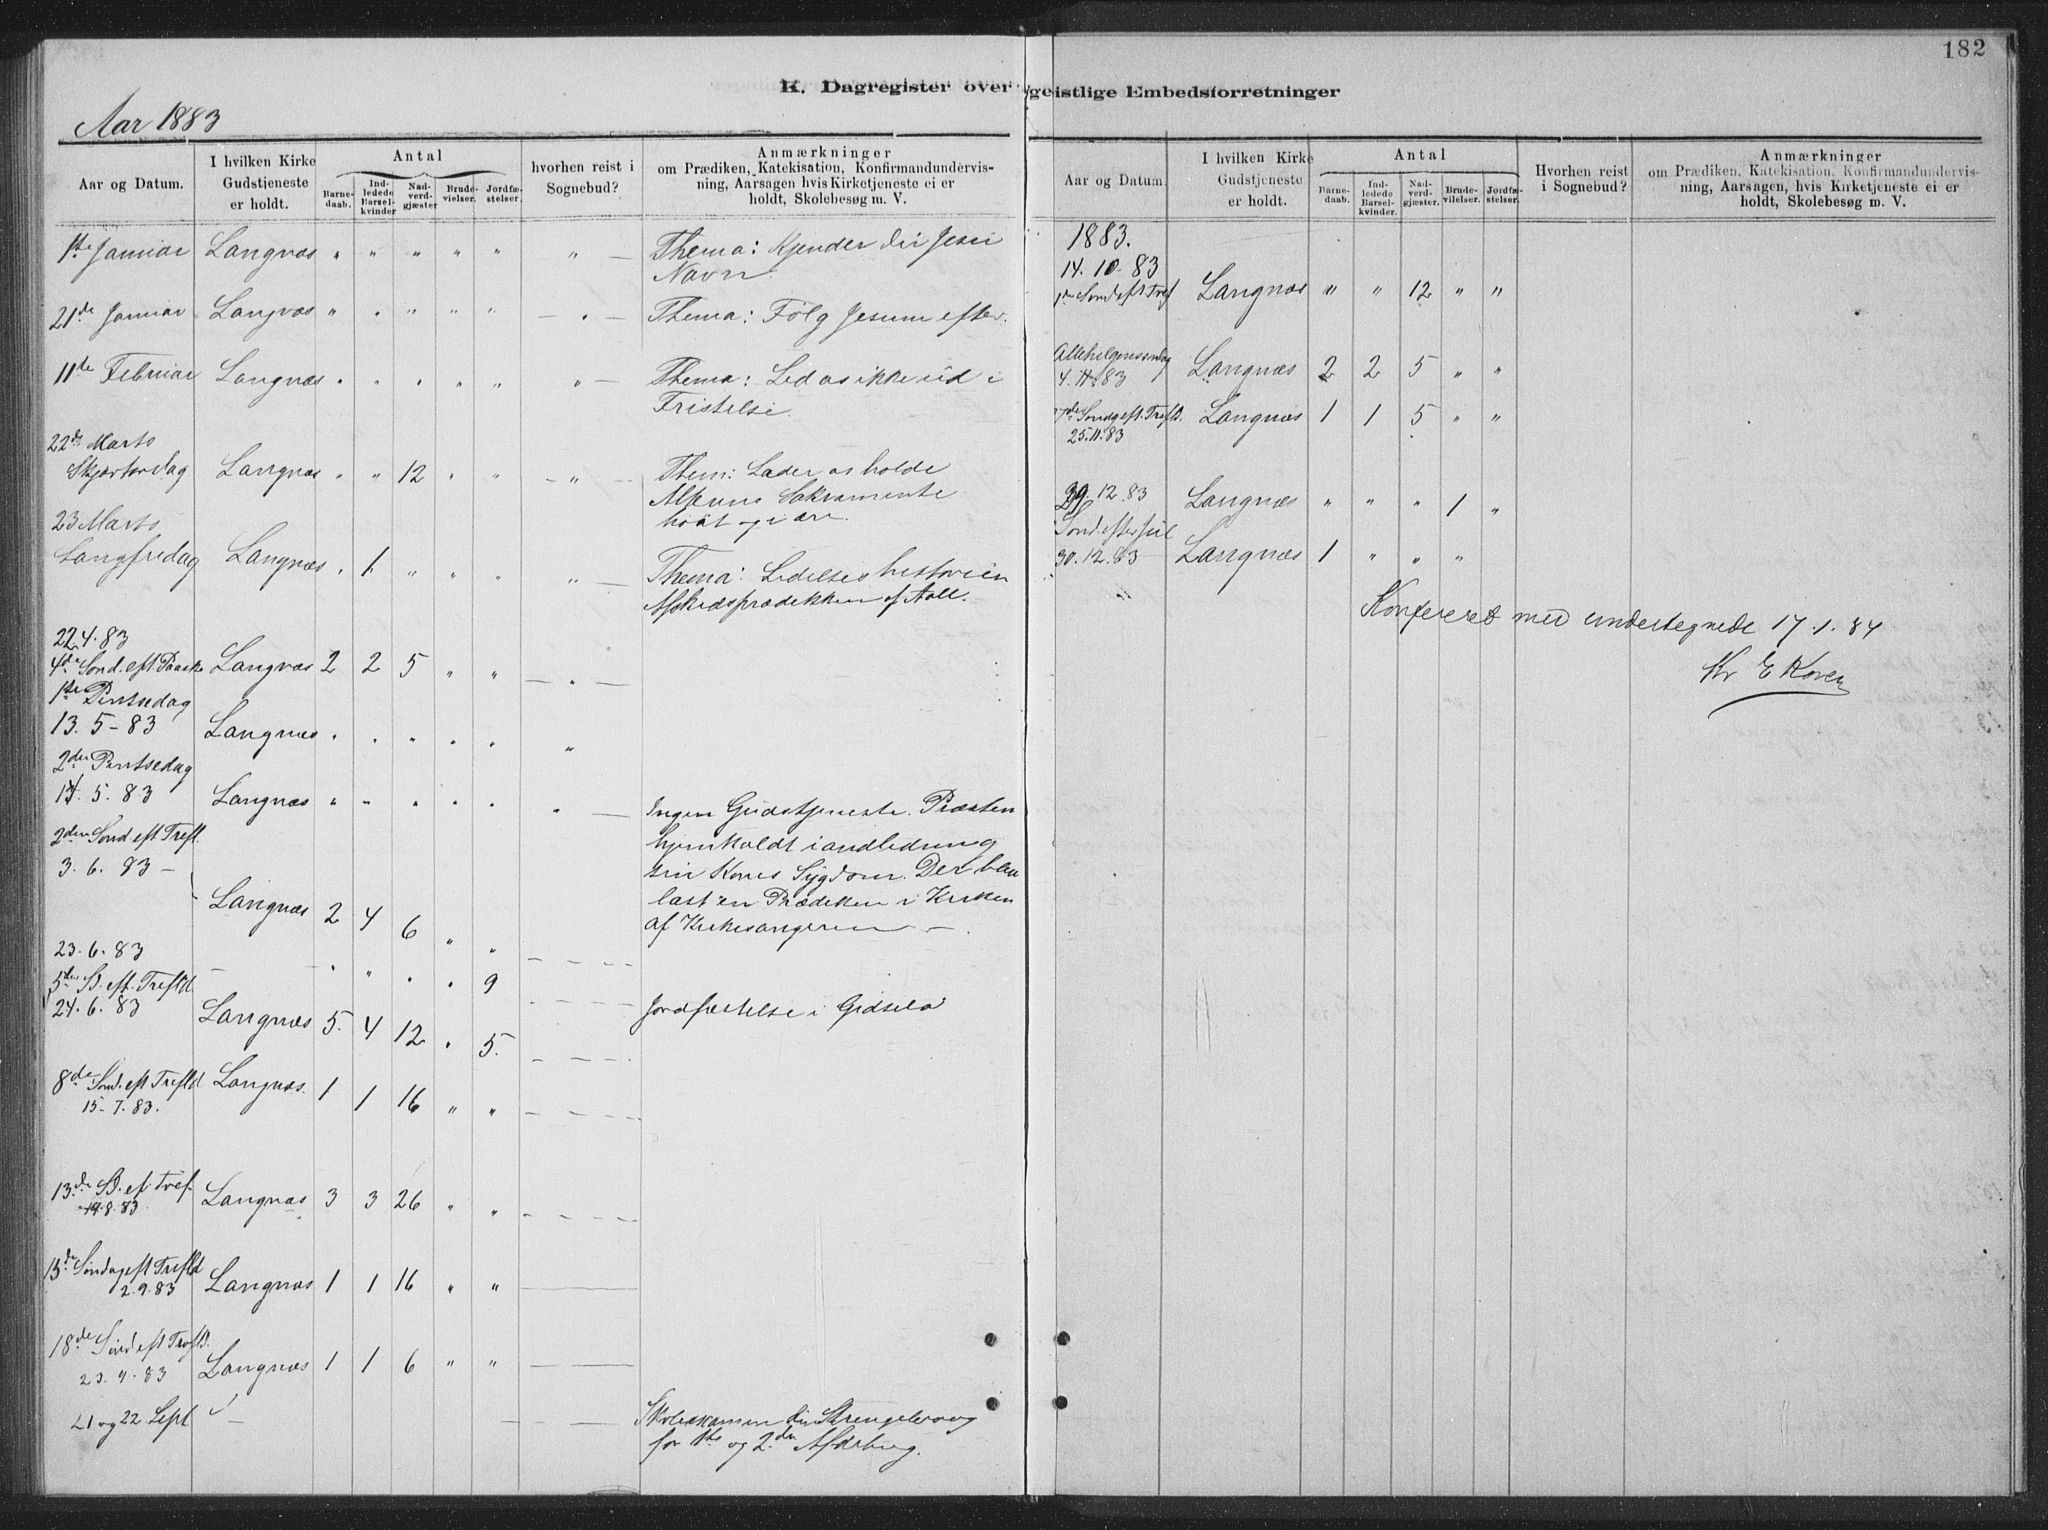 182
K. Dagregister over geistlige Embedsforretninger
Aar 1883
Aar og Datum.
I hvilken Kirke
Gudstjeneste
er holdt.
Antal
Barne-
daab.
Ind-
ledede
Barsel-
kvinder
Nad-
verd-
gjæster
Brude-
vielser.
Jordfæ-
stelser.
hvorhen reist i
Sognebud?
Anmærkninger
om Prædiken, Katekisation, Konfirmandundervis-
ning, Aarsagen hvis Kirketjeneste ei er
holdt, Skolebesøg m. V.
1ste Januar Langnæs " " " " " " Thema: Kjender du Jesu
Navn.
21de Januar Langnæs " " " " " " Thema: Følg Jesum efter.
11te Februar Langnæs " " " " " " Thema: Led os ikke ud i
Fristelse.
22de Marts
Skjærtorsdag Langnæs " " 12 " " " Them: Lader os holde
Alterens Sakramente
høit og i ære.
23 Marts
Langfredag Langnæs " 1 " " " " Thema: Lidelseshistorien
Afskedsprædikken af Aall.
22.4.83
4de Sond. eft Paaske Langnæs 2 2 5 " " "
1ste Pintsedag
13. 5 - 83 Langnæs " " " " " "
2den Pintsedag
14. 5. 83 Langnæs " " " " " "
2den Sond eft Trefl.
3. 6. 83 —
Ingen Gudstjeneste. Præsten
hjemkaldt i andledning
sin Kones Sygdom. Der blev
læst en Prædiken i Kirken
af Kirkesangeren —
Langnæs 2 4 6 " "
23. 6. 83 — " " " " 9
5de S. eft. Trefld
24. 6. 83 Langnæs 5. 4 12 " 5.
Jordfæstelse i
8de Sond. eft Trefld Langnæs. 1 1 16 " "
15-7.83.
13de S. ef. Tref. Langnæs 3 3 26 " "
19.8.83
15de Søndag eft Trefld Langnæs 1 1 16 " "
2.9.83
18de Sønd eft Trefld. Langnæs 1 1 6 " "
23.9.83
21 og 22 Sept — — — Skoleexamen
for 1ste og 2den Afdeling.
Aar og Datum.
I hvilken Kirke
Gudstjeneste
er holdt.
Antal
Barne-
daab.
Ind-
ledede
Barsel-
kvinder.
Nad-
verd-
gjæster.
Brude-
vielser.
Jordfæ-
stelser.
Hvorhen reist
i Sognebud?
Anmærkninger
om Prædiken, Katekisation, Konfirmandundervis-
ning, Aarsagen, hvis Kirketjeneste ei er
holdt, Skolebesøg m. V.
1883.
14. 10. 83
Sond eft Tref Langnæs " " 12 " "
Allehelgensdag Langnæs 2 2 5 " "
4. 11. 83
27de Søndg eft. Trefld. Langnæs 1 1 5 " "
25.11.83
29. 12. 83 Langnæs " " " 1 "
Sond efter Jul
30. 12. 83 Langnæs 1 " " "
Konfereret med undertegnede 17.1.84
Kr E Koren